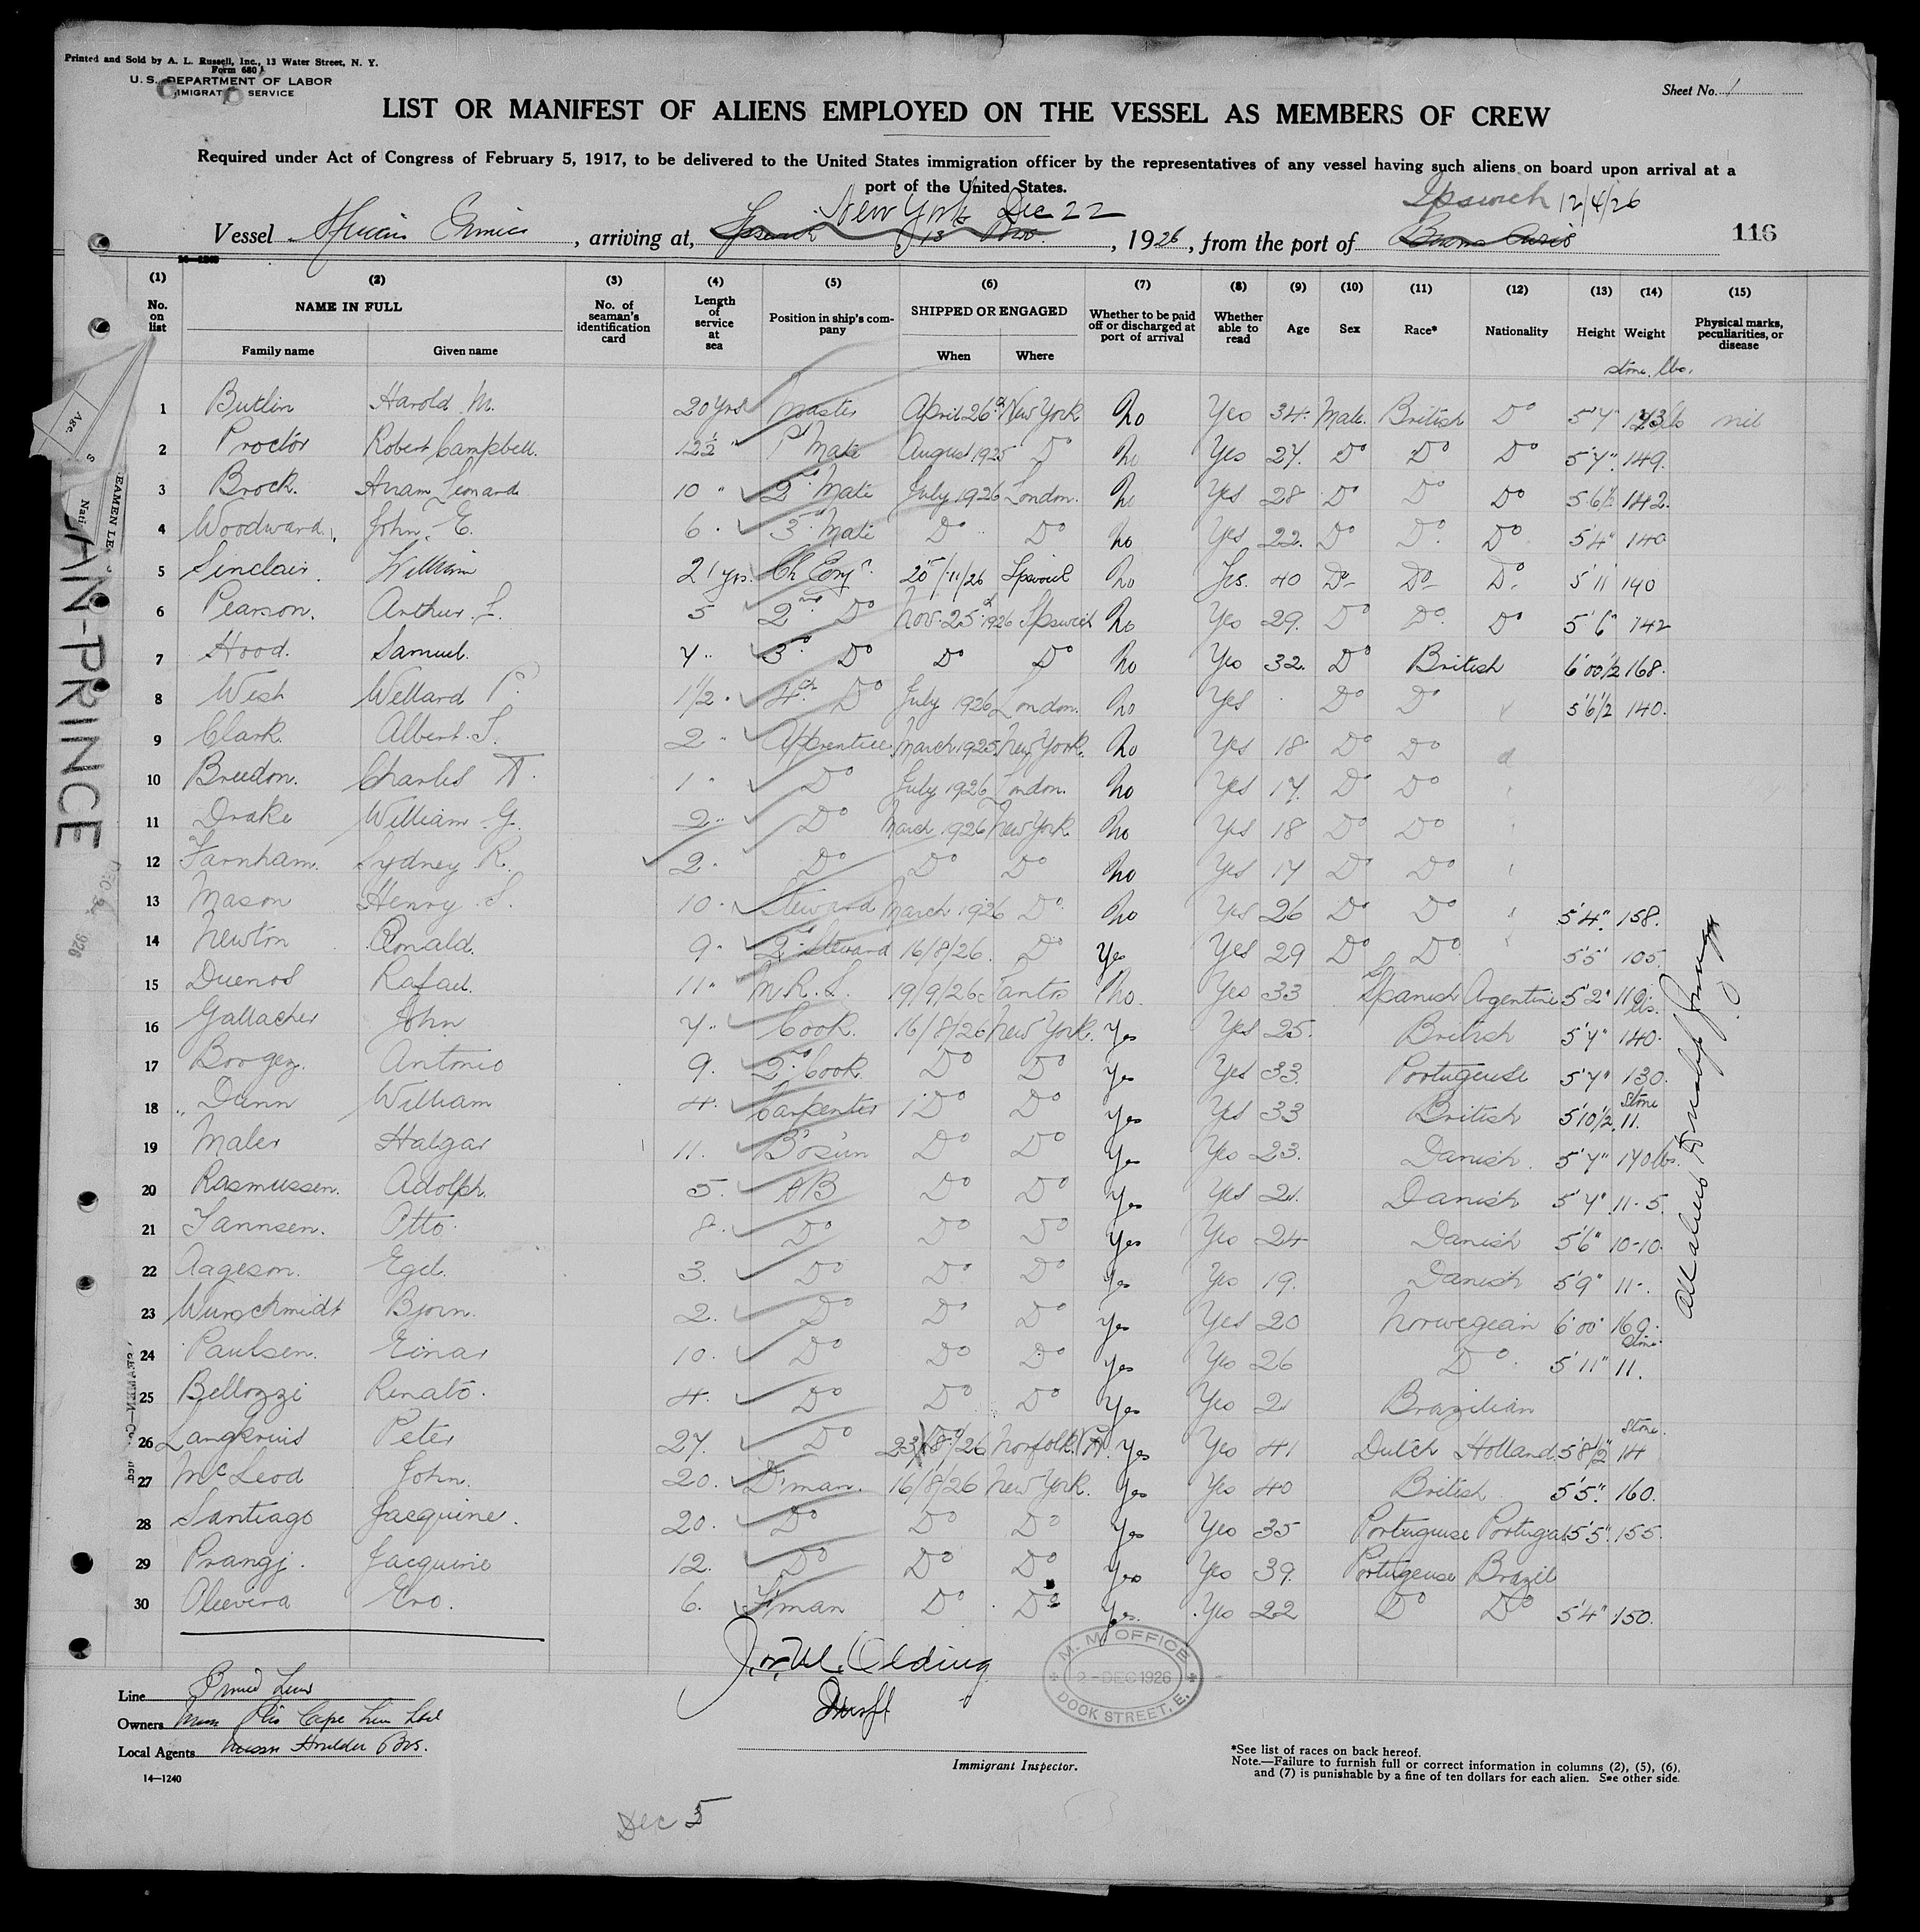 Printed and Sold by A. L. Russell, Inc., 13 Water Street, N. Y.
Form 680
U. S. DEPARTMENT OF LABOR
IMMIGRATION SERVICE
Sheet No. 1
LIST OR MANIFEST OF ALIENS EMPLOYED ON THE VESSEL AS MEMBERS OF CREW
Required under Act of Congress of February 5, 1917, to be delivered to the United States immigration officer by the representatives of any vessel having such aliens on board upon arrival at a
port of the United States.
New York Dec 22 Ipswich 12/4/26
Vessel African Prince, arriving at, Ipswich, 13 Nov., 1926, from the port of Buenos Aires 116
(1) (2) (3) (4) (5) (6) (7) (8) (9) (10) (11) (12) (13) (14) (15)
No. on list NAME IN FULL No. of seaman's identification card Length of service at sea Position in ship's company SHIPPED OR ENGAGED Whether to be paid off or discharged at port of arrival Whether able to read Age Sex Race* Nationality Height Weight Physical marks, peculiarities, or disease
Family name Given name When Where
stone. lbs.
1 Butlin Harold M. 20 Yrs Master April 26 New York No Yes 34 Male British Do 5'7" nil
2 Proctor Robert Campbell. 12½ " 1st Mate August 1925 Do No Yes 27. Do Do Do 5'7" 149.
3 Brock. Leonard 10 " 2nd Mate July 1926 London. No Yes 28 Do Do Do 5'6½ 142.
4 Woodward, John. E. 6 . 3rd Mate Do Do No Yes 22. Do Do Do 5'4" 140
5 Sinclair William 21 yrs. Ch Engr. 25/11/26 Ipswich No Yes. 40 Do Do Do 5'11 140
6 Pearson. Arthur. L. 5 2nd Do Nov. 25th 1926 Ipswich No Yes 29. Do Do Do 5'6" 142
7 Hood. Samuel. 7 .. 3rd Do Do Do No Yes 32. Do British 6'00½ 168.
8 West Willard P. 1½ . 4th Do July 1926 London. No Yes Do Do 5'6½ 140.
9 Clark. Albert. S. 2 " Apprentice March 1925 New York. No Yes 18 Do Do
10 Breedon. Charles 1 " Do July 1926 London. No Yes 17. Do Do
11 Drake William. G. 2 .. Do March 1926 New York No Yes 18 Do Do
12 Farnham. Sydney R. 2 . Do Do Do No Yes 17 Do Do
13 Mason Henry. S. 10 . Steward March 1926 Do No Yes 26 Do Do 5'4". 158.
14 Newton Ronald. 9 . 2nd Steward 16/8/26. Do Yes Yes 29 Do Do 5'5' 105.
15 Duenos Rafael. 11 " M.R.S. 19/9/26 Santos No. Yes 33 Spanish Argentine 5'2" 110 lbs.
16 Gallacher John 7 .. Cook. 16/8/26 New York. Yes Yes 25. British 5'7" 140.
17 Borgez. Antonio 9. 2nd Cook. Do Do Yes Yes 33. Portugeuse 5'7" 130.
18 Dunn William 4. Carpenter Do Do Yes Yes 33 British 5'10½. 11. Stone
19 Maler Halgar 11. Bo'sun Do Do Yes Yes 23. Danish. 5'7" 140 lbs.
20 Rasmussen. Adolph. 5. AB Do Do Yes Yes 21. Danish 5'7" 11-5.
21 Jannsen. Otto. 8. Do Do Do Yes Yes 24 Danish 5'6" 10-10.
22 Aageson. Egil. 3. Do Do Do Yes Yes 19. Danish 5'9" 11-.
23 Wurschmidt Bjorn. 2. Do Do Do Yes Yes 20 Norwegian 6'00" 160.
24 Paulsen. Einar 10. Do Do Do Yes Yes 26 Do. 5'11" 11. Stone
25 Bellozzi Renato. 4. Do Do Do Yes Yes 21 Brazilian
26 Peter 27. Do 23/8/26 Norfolk. Va. Yes Yes 41 Dutch Holland 5'8½" 14 Stone.
27 McLeod John. 20. D'man. 16/8/26 New York. Yes Yes 40 British 5'5". 160.
28 Santiago Jacquine. 20. Do Do Do Yes Yes 35 Portuguese Portugal 5'5". 155.
29 Prangj. Jacquine 12. Do Do Do Yes Yes 39. Portugeuse Brazil
30 Oleevira Ero. 6. F'man Do Do Yes. Yes 22 Do Do 5'4" 150.
AN-PRINCE
M. M. OFFICE
2 - DEC 1926
DOCK STREET, E.
Line Prince Line
Owners
Local Agents Houlder Bros.
14—1240
Immigrant Inspector.
*See list of races on back hereof.
Note.—Failure to furnish full or correct information in columns (2), (5), (6),
and (7) is punishable by a fine of ten dollars for each alien. See other side.
Dec 5